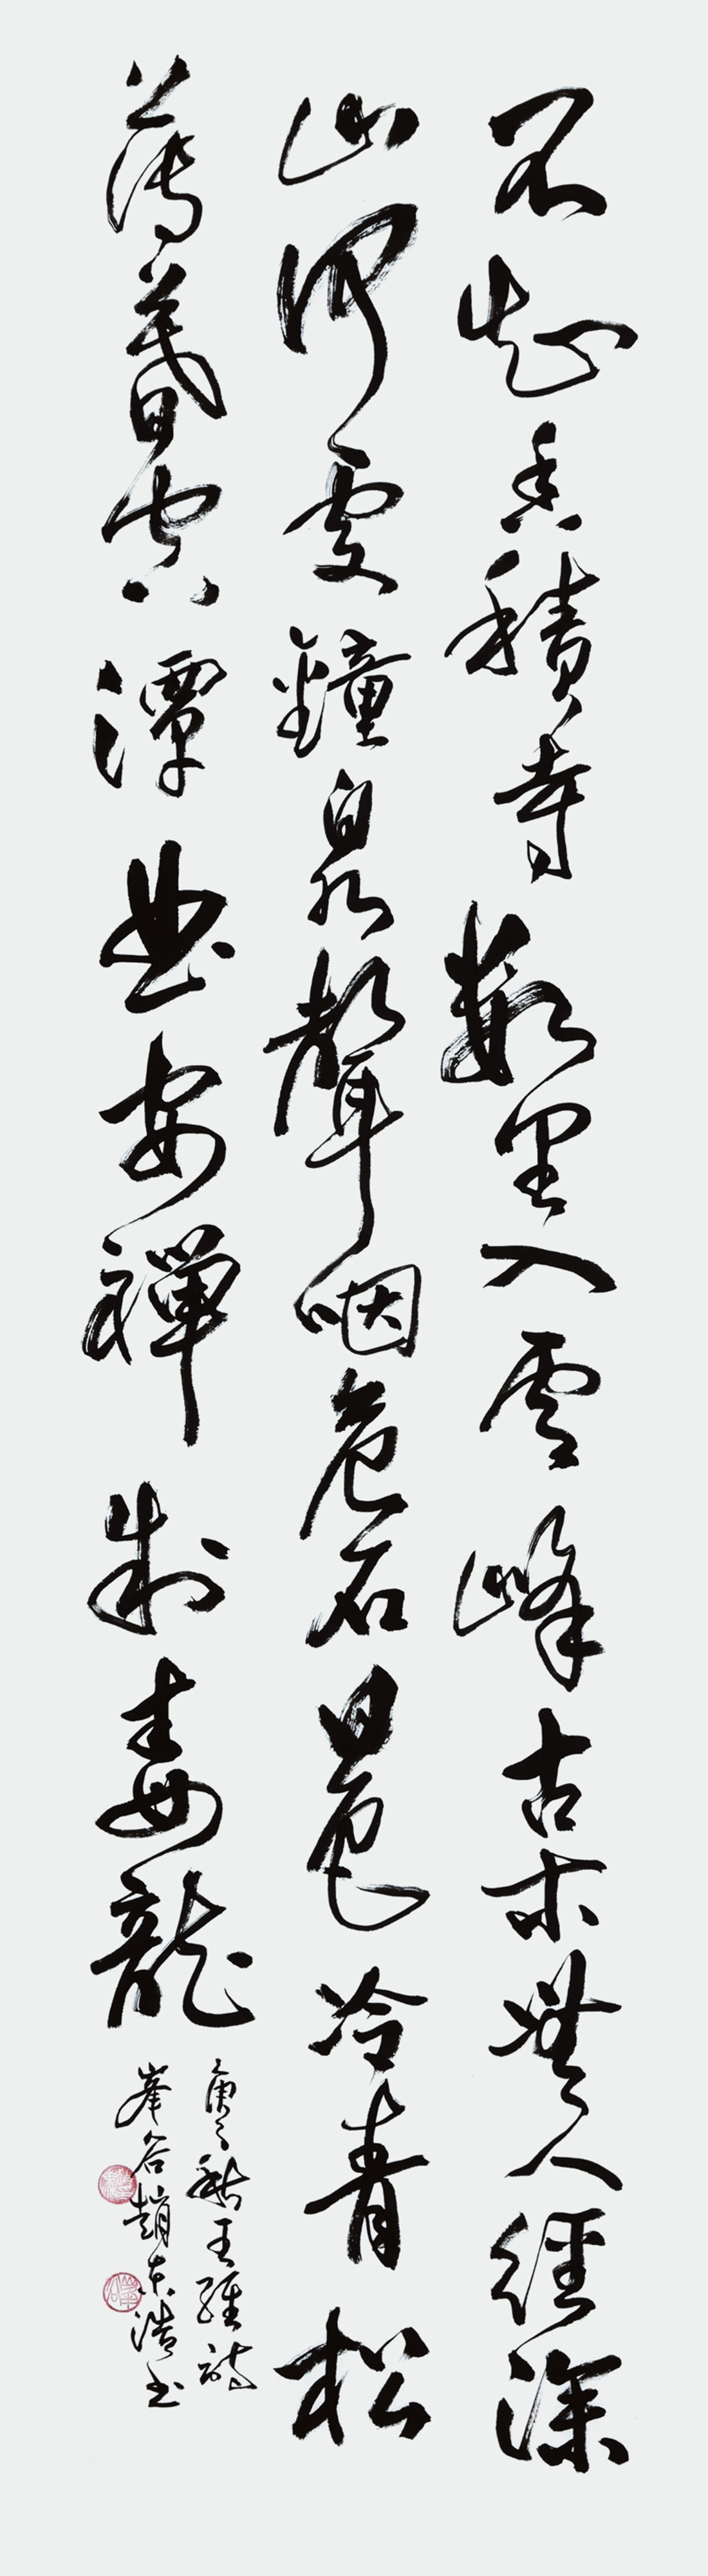 不知香積寺數里入雲峰古木無人經深
山何處鐘泉聲咽危石日色冷青松
薄暮空潭曲安禪制毒龍
庚子秋王維詩
峯谷趙東浩書